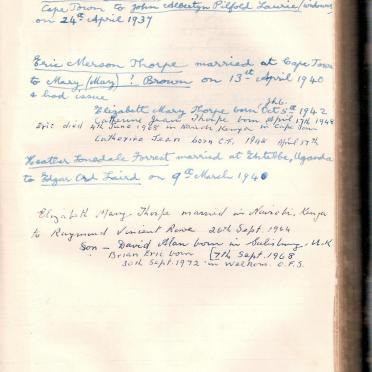 Cape Town to John Albertyn Pilfold Laurie (widower)
on 24th April 1937
Eric Merson Thorpe married at Cape Town
to Mary (May) ? Brown on 13th April 1940
& had issue
Jhb.
Elizabeth Mary Thorpe born Oct 5th 1942
Catherine Jean Thorpe born April 17th 1948
Eric died 4th June 1968 in Nairobi Kenya in Cape Town
Catherine Jean born C.T. 1948 April 17th
Heather Lonsdale Forrest married at Entebbe, Uganda
to Edgar Ord Laird on 9th March 1940
Elizabeth Mary Thorpe married in Nairobi, Kenya
to Raymond Vincent Rowe 26th Sept. 1964
Son - David Alan born in Salisbury, U.K
Brian Eric born [7th Sept. 1968
30th Sept. 1972 in Welkom. O.F.S.